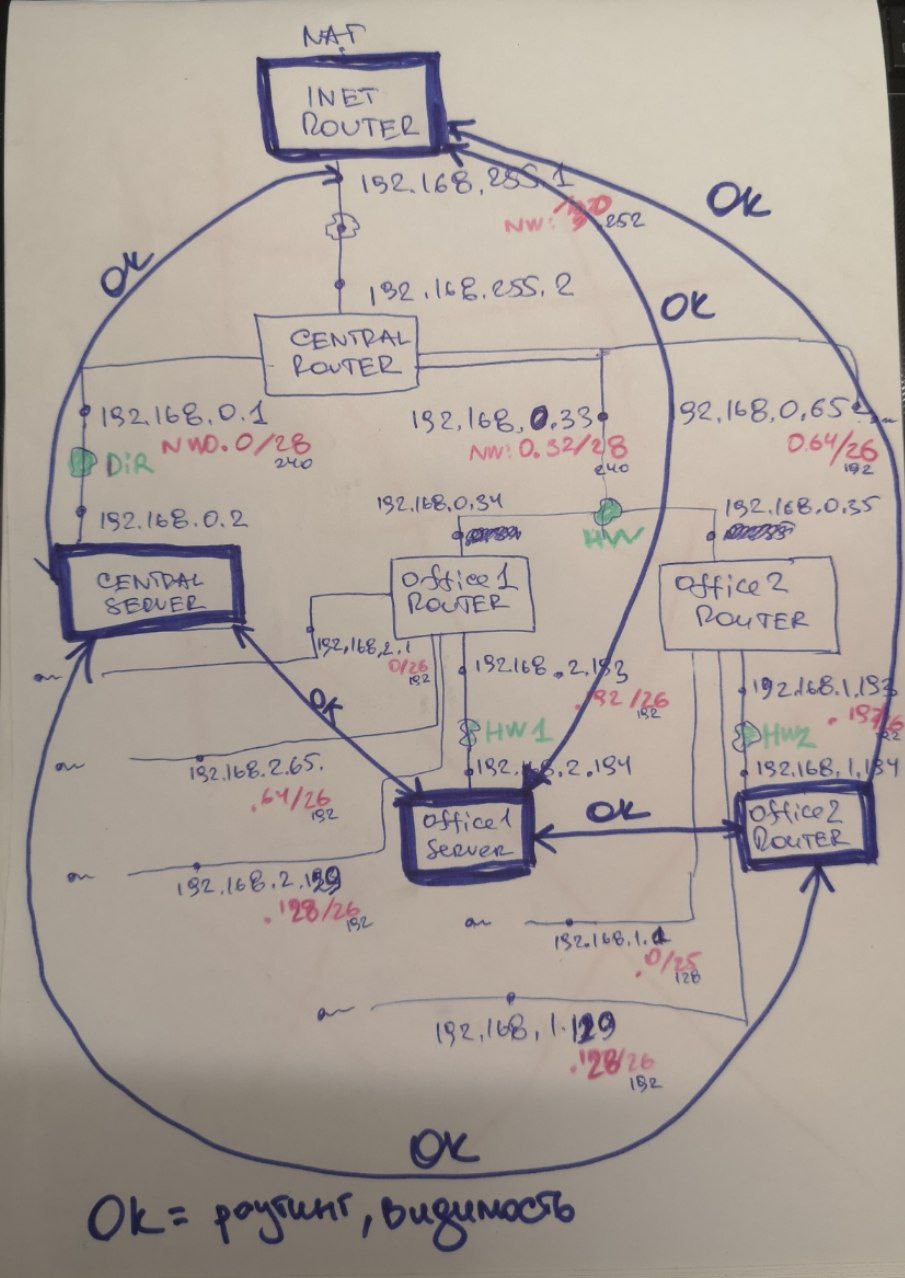 NAT
INET
ROUTER
192.168.255.1
NW:
.252
OK
OK
OK
192.168.255.2
CENTRAL
ROUTER
192.168.0.1
NW0.0/28
240
DIR
192.168.0.2
192.168,0.33
NW: 0.32/28
240
HW
92.168,0,65
0.64/26
192
192.168.0.34
192.168.0.35
CENTRAL
SERVER
Office1
ROUTER
Office2
ROUTER
192,168,2.1
0/26
192
192.168.2.193
.192/26
192
192.168.1.193
HW1
HW2
192.168.2.194
192.168.1.194
OK
192.168.2.65.
.64/26
192
Office1
Server
OK
Office2
ROUTER
192.168.2.129
.128/26
192
192.168.1.1
.0/25
128
192,168,1.129
.128/26
192
OK
Ok = роутинг, видимость